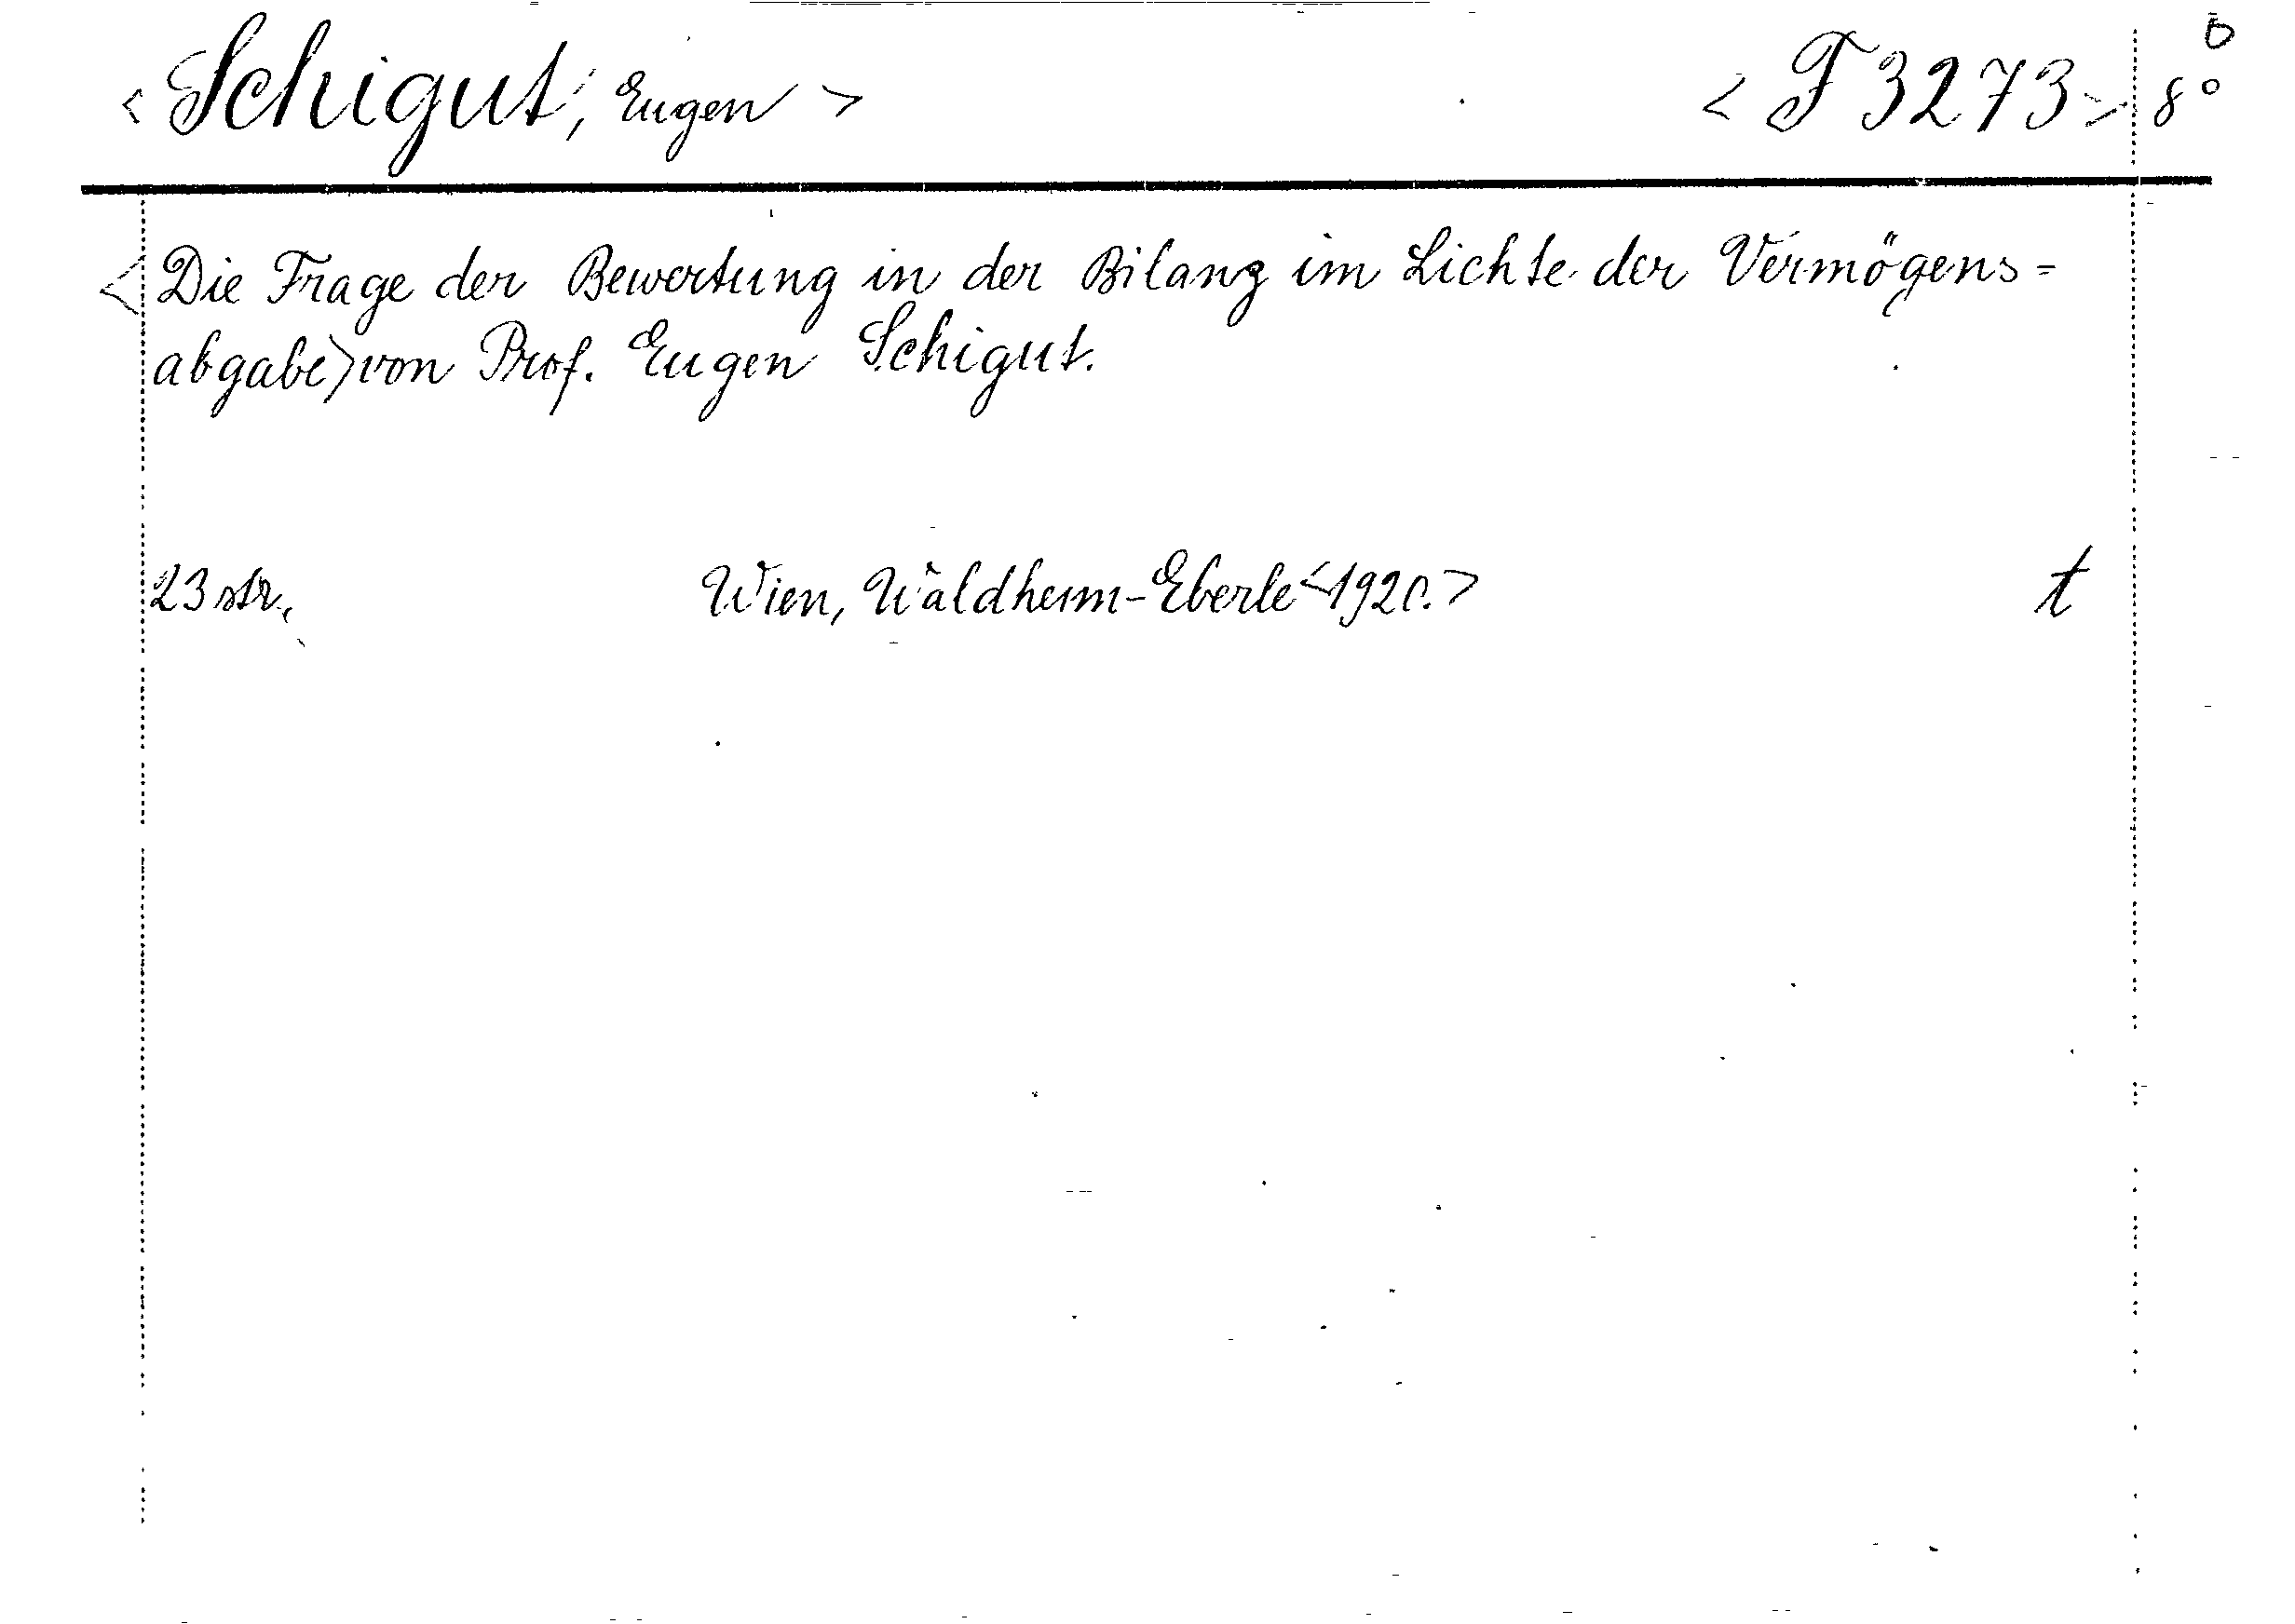 <Schigut, Eugen> <F 3273> 8°
<Die Frage der Bewertung in der Bilanz im Lichte der Vermögens=
abgabe> von Prof. Eugen Schigut.
23 str. Wien, Waldheim-Eberle <1920.> t